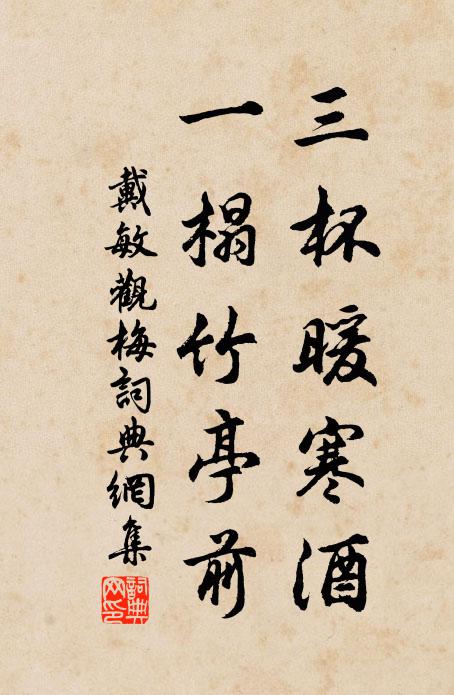 三杯暖寒酒
一榻竹亭前
戴敏觀梅詞典網集
詞典网印